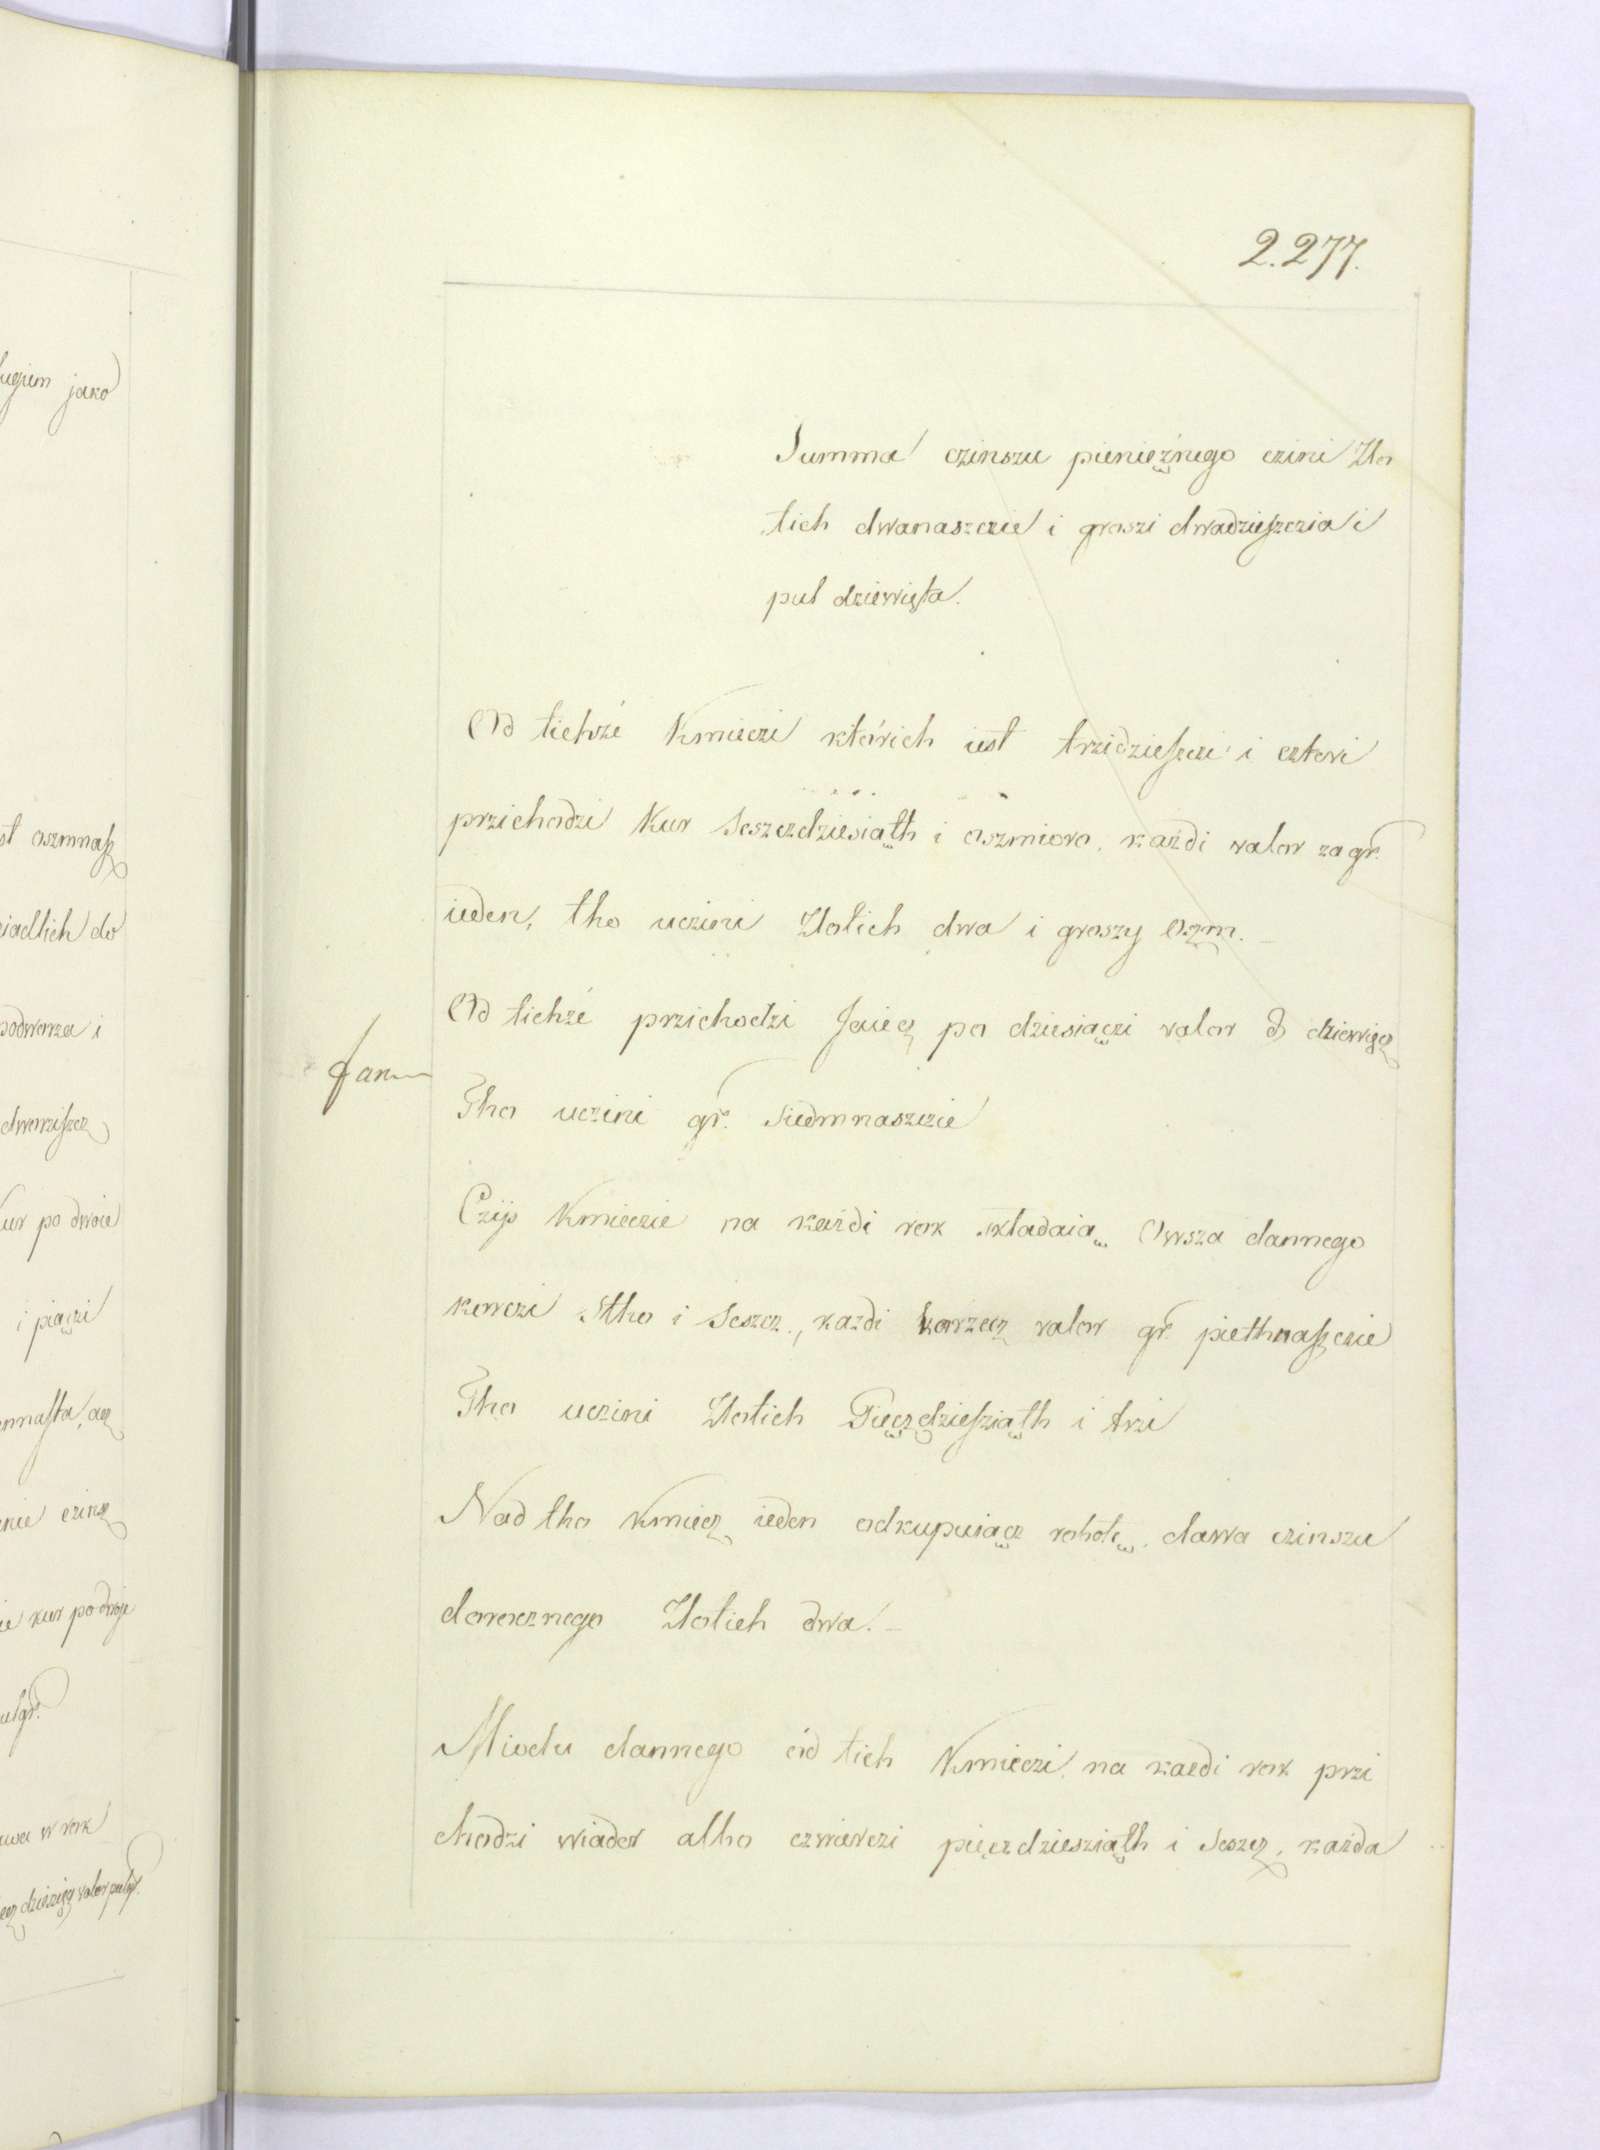 2.277.
Summa czinszu pieniężnego czini Zło
tich dwanaszczie i groszi dwadzieszczia i
puł dziewięta.
Od tichże Kmieczi którich iest trzidzieszczi i czteri
przichodzi Kur Seszczdziesiąth i oszmioro, każdi valor za gr.
ieden, tho uczini Złotich dwa i groszy Ozm.
Od tichże przichodzi Jaiecz po dziesiączi valor d dziewięcz
Tho uczini gr. Siedmnaszczie
Czyż Kmieczie na każdi rok składaią Owsza dannego
korczi Stho i Seszcz, każdi korzecz valor gr. piethnaszczie
Tho uczini Złotich Pięczdziesziąth i trzi
Nad tho Kmiecz ieden odkupuiącz robotę dawa czinszu
dorocznego Złotich dwa.
Miodu dannego od tich Kmieczi na każdi rok przi
chodzi wiader albo czwierczi pięczdziesziąth i Seszcz, każda
ugiem jako
st oszmnasz
siadlich do
podworza i
dworziszcz
Kur po dwoie
i piączi
nnasta, acz
nie czinsz
ie kur po dwoje
uł gr.
awa w rok
ecz dziesięcz valor puł gr.